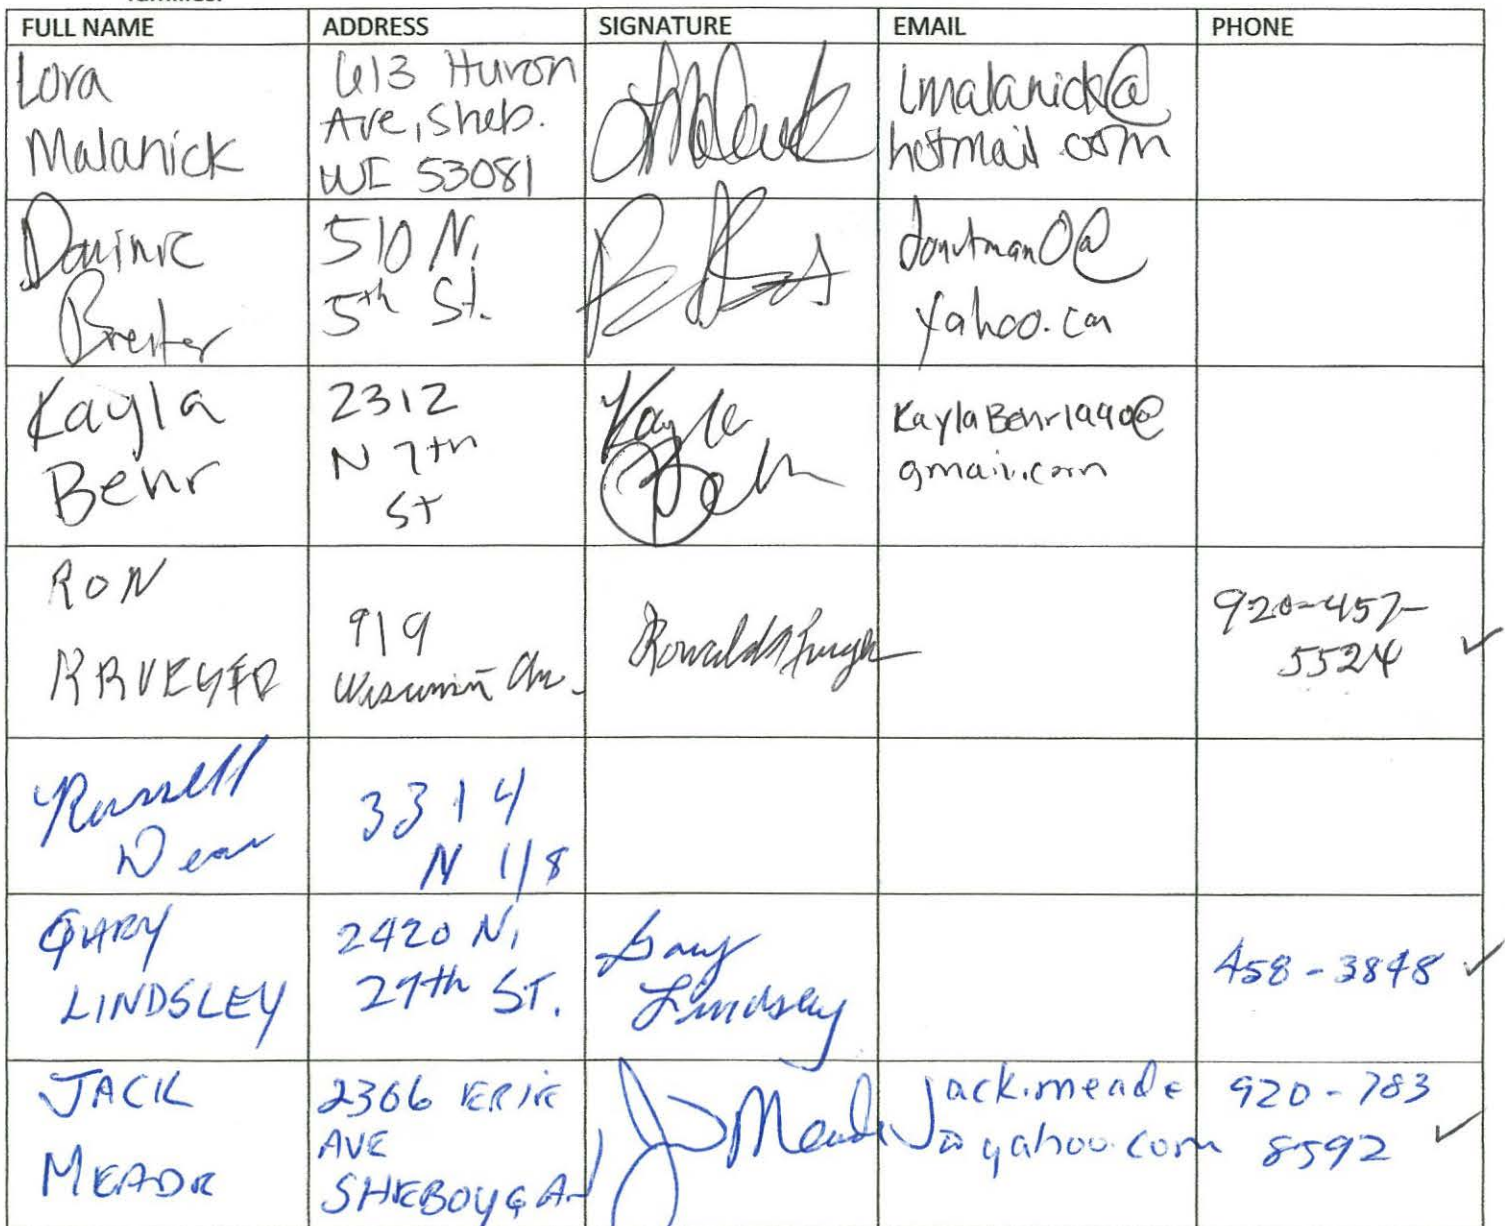 families.
FULL NAME ADDRESS SIGNATURE EMAIL PHONE
Lora
Malanick
613 Huron
Ave, Sheb.
WI 53081
lmalanick@
hotmail.com
Dominic
Breiter
510 N.
5th St.
donutman0@
yahoo.com
Kayla
Behr
2312
N 7th
St
Kayla
Behr
KaylaBehr1990@
gmail.com
RON
KRUEGER
919
Wisconsin Av.
Ronald Krueger
920-457-
5524
Russell
Dean
3314
N
GARY
LINDSLEY
2420 N.
29th ST.
Gary
Lindsley
458-3848
JACK
MEADE
2306 ERIE
AVE
SHEBOYGAN
J Meade
jack.meade
@yahoo.com
920-783
8592